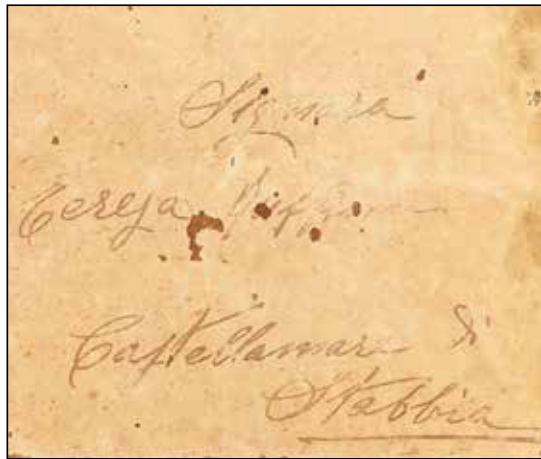 Signora
Teresa
Castellamare di
Stabbia